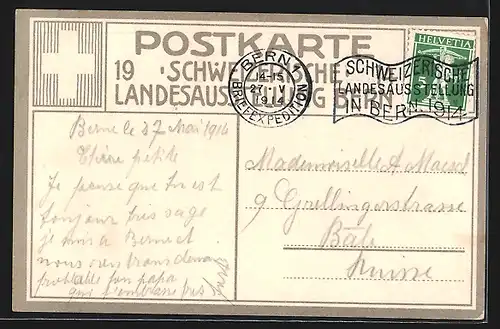 POSTKARTE
19 · SCHWEIZERISCHE
LANDESAUSSTELLUNG BERN
BERN 1
14-15
27. V
1914
BRIEFEXPEDITION
HELVETIA
SCHWEIZERISCHE
LANDESAUSSTELLUNG
IN BERN 1914
Berne le 27 Mai 1914
Chère petite
Je pense que tu est
toujour très sage
je suis a Berne et
nous
ton papa
qui t'embrasse
Mademoiselle A
9 Grellingerstrasse
Bâle
Suisse